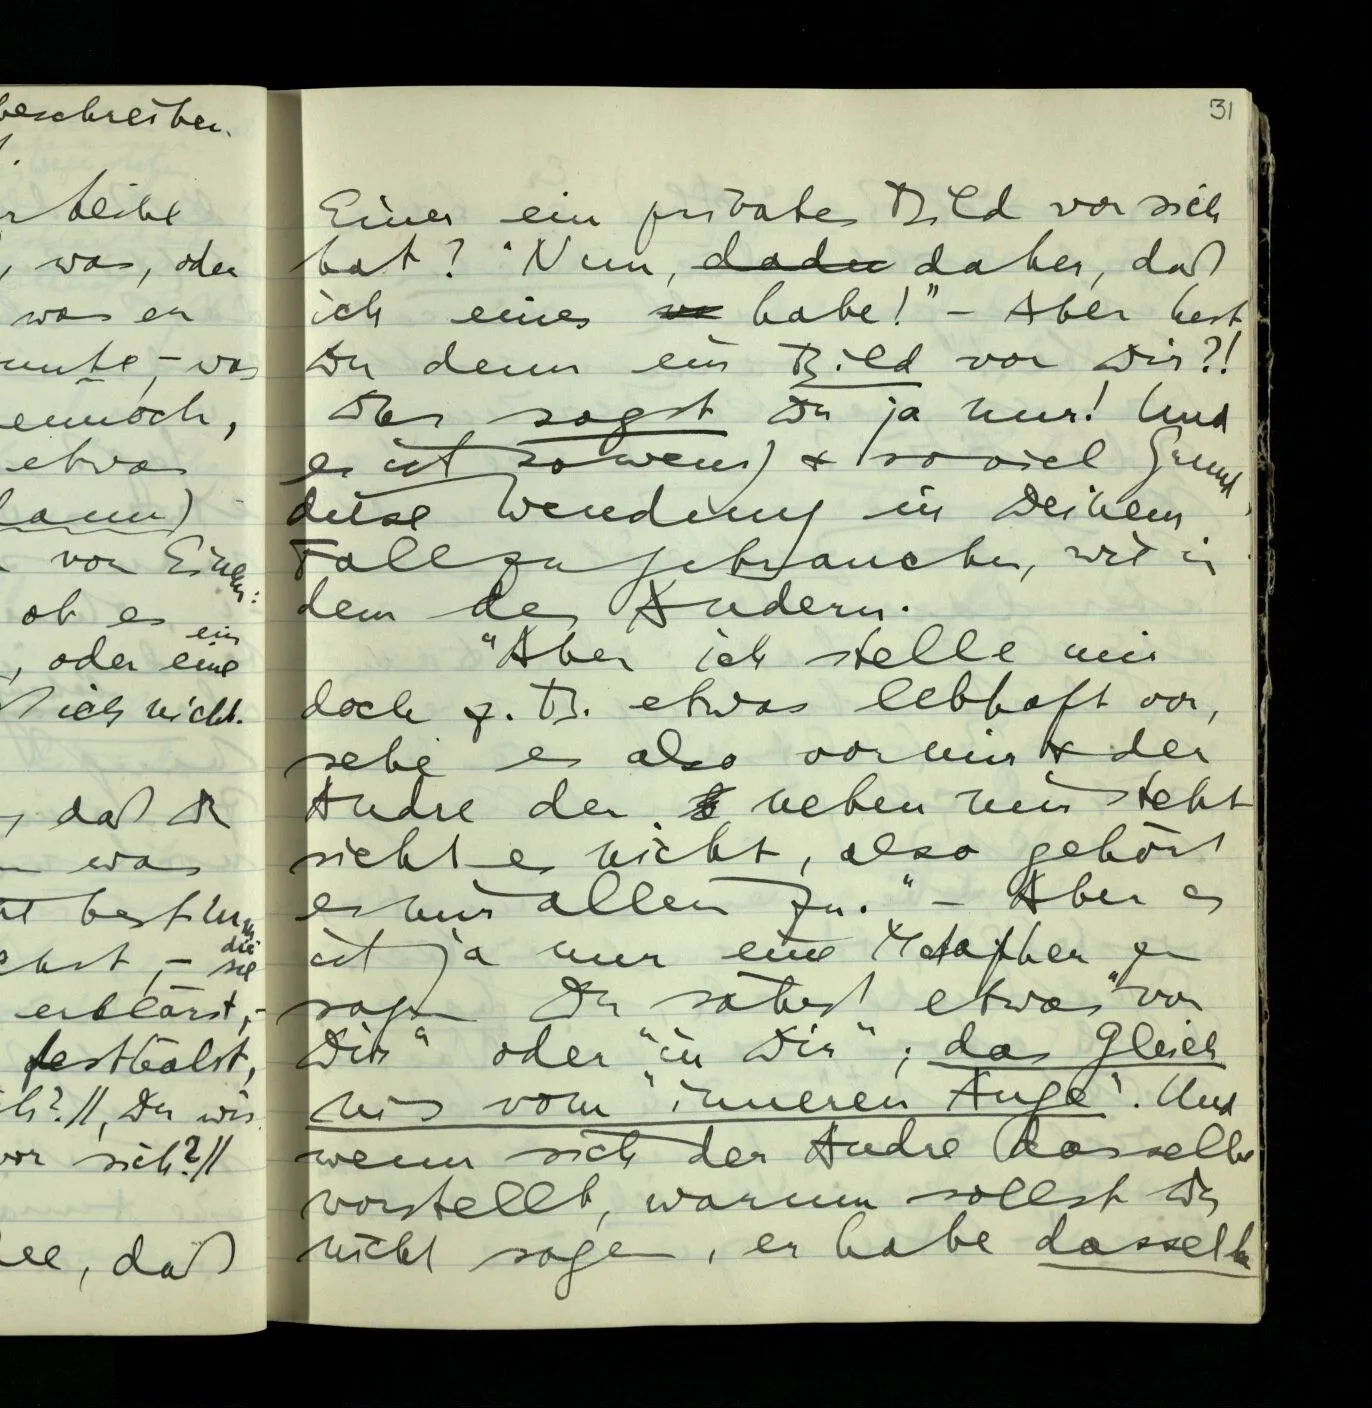 beschreiben.
bleibt
, was, oder
was er
konnte, – was
dennoch,
etwas
kann)
von Einem:
ob es
ein
, oder eine
ich nicht.
, daß Du
was
bestimm
die
– sie
erklärt, –
festhälst,
ich?//, Du wir
vor sich?//
, daß
31
Einer ein privates Bild vor sich
hat? "Nun, daher, daß
ich eines habe!" – Aber hast
Du denn ein Bild vor Dir?!
Das sagst Du ja nur! Und
es ist sowenig & soviel Grund,
diese Wendung in Deinem
Fall zu gebrauchen, wie in
dem des Andern.
"Aber ich stelle mir
doch z. B. etwas lebhaft vor,
sehe es also vor mir & der
Andre der neben mir steht
sieht es nicht, also gehört
es mir allein zu." – Aber es
ist ja nur eine Metapher zu
sagen Du sähest etwas "vor
Dir" oder "in Dir"; das Gleich
nis vom "inneren Auge". Und
wenn sich der Andre dasselbe
vorstellt, warum sollst Du
nicht sagen, er habe dasselbe